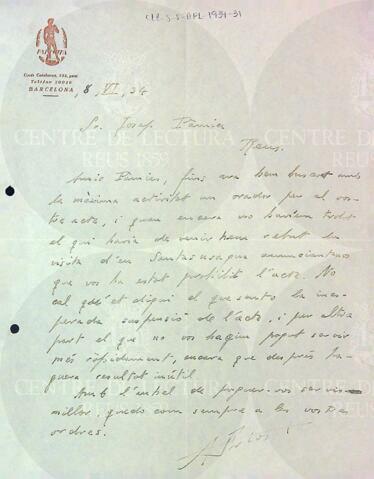 CLR.S.S-APL 1934-31
Corts Catalanes,
Telèfon
BARCELONA
8, VI, 34
Sr. Josep
Reus.
Amic fins ara hem buscat amb
la màxima activitat un orador per al vos-
tre acte, i quan encara no havíem trobat
el qui havia de venir hem rebut la
visita d'en anunciant-nos
que vos ha estat prohibit l'acte. No
cal que et digui el que sento la ines-
perada suspensió de l'acte, i per altra
part el que no vos hagim pogut servir
més ràpidament, encara que després ha-
guera resultat inútil.
Amb l'anhel de poguer-vos servir
millor, quedo com sempre a les vostres
ordres.
CENTRE DE LECTURA
REUS 1859